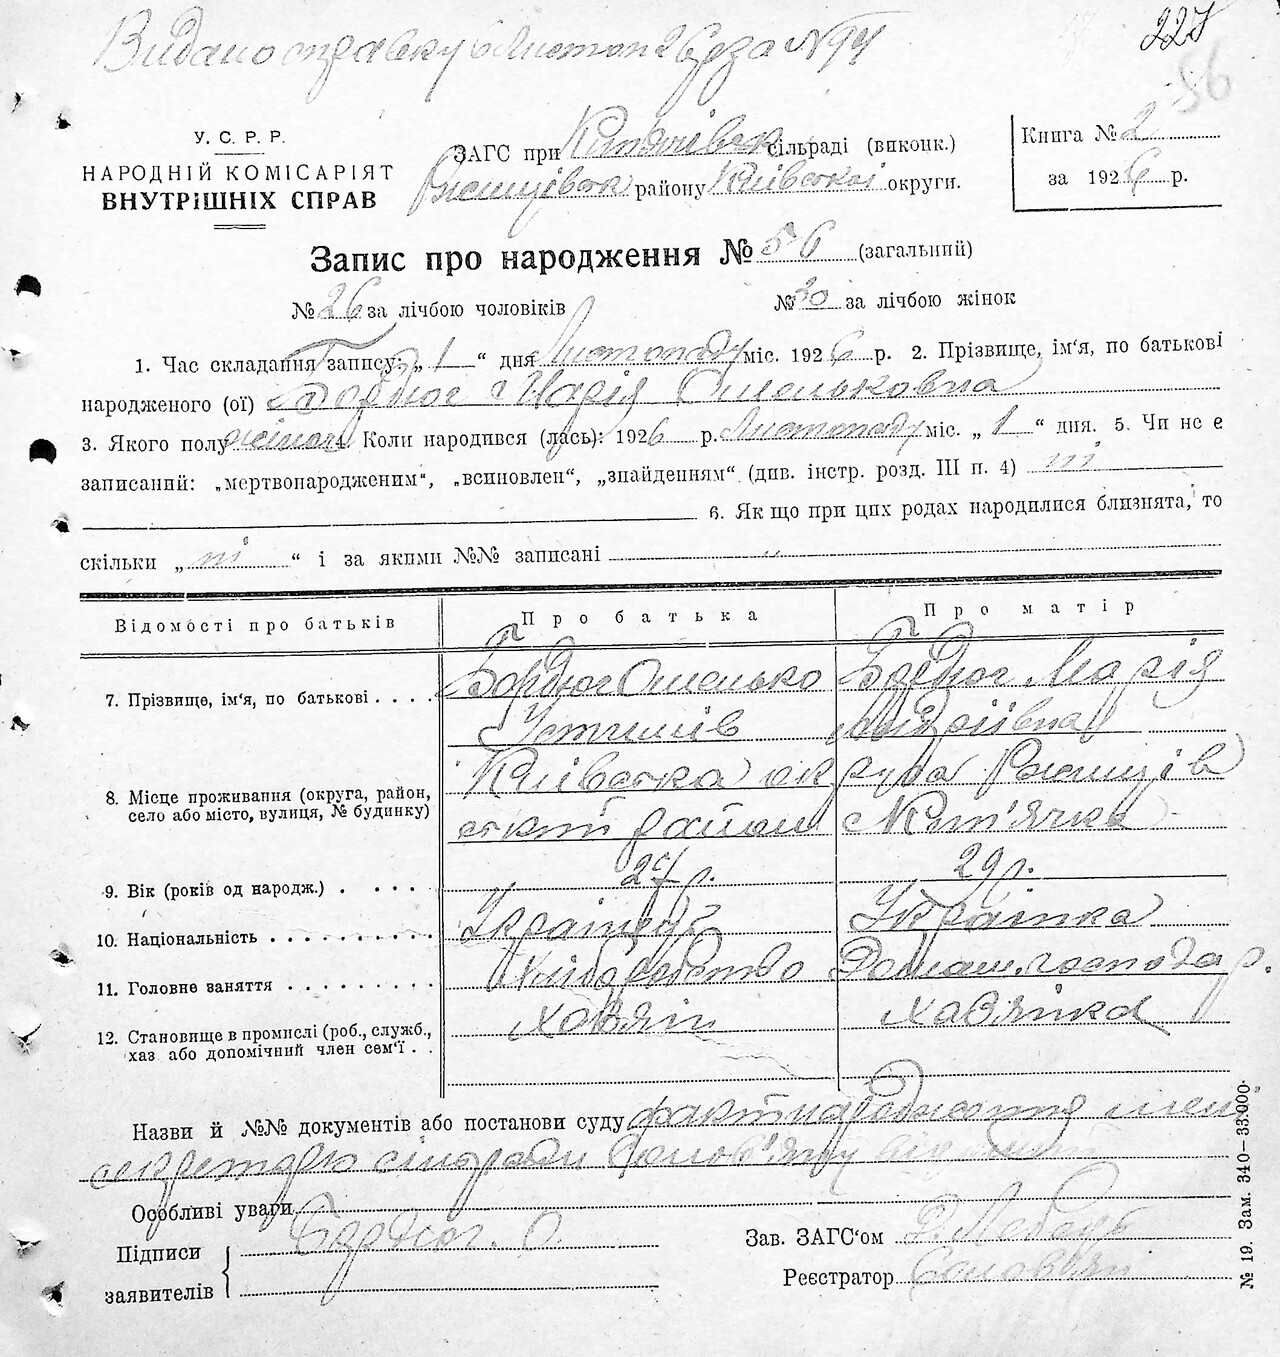 Видано справку 6 Листоп 26 р за № 94
227
56
У. С. Р. Р.
НАРОДНІЙ КОМІСАРІЯТ
ВНУТРІШНІХ СПРАВ
ЗАГС при сільраді (виконк.)
району Київської округи.
Книга № 2
за 1926 р.
Запис про народження № 56 (загальний)
№ 26 за лічбою чоловіків № 30 за лічбою жінок
1. Час складання запису: „ 1 “ дня Листопаду міс. 1926 р. 2. Прізвище, ім‘я, по батькові
народженого (ої) Бордюг Марія Омельковна
3. Якого полу жіноч 4. Коли народився (лась): 1926 р. Листопаду міс. „ 1 “ дня. 5. Чи не є
записаний: „мертвонародженим“, „всиновлен“, „знайденням“ (див. інстр. розд. III п. 4) ні
6. Як що при цих родах народилися близнята, то
скільки „ ні “ і за якими №№ записані „
Відомості про батьків Про батька Про матір
7. Прізвище, ім‘я, по батькові . . . . Бордюг Омелько Бордюг Марія
Устимів Андріївна
8. Місце проживання (округа, район, село або місто, вулиця, № будинку) Київська округа Ржищів
ський район
9. Вік (років од народж.) . . . . . 27 р. 29 р.
10. Національність . . . . . . . . . . Українець Українка
11. Головне заняття . . . . . . . . . Хліборобство Домашн. господар.
12. Становище в промислі (роб., служб., хаз або допомічний член сем‘ї . . Хазяїн Хазяйка
Назви й №№ документів або постанови суду факт народження
секретарю сільради
Особливі уваги
Підписи
заявителів
Бордюг. О.
Зав. ЗАГС‘ом
Реєстратор
№ 19. Зам. 340—33.000.